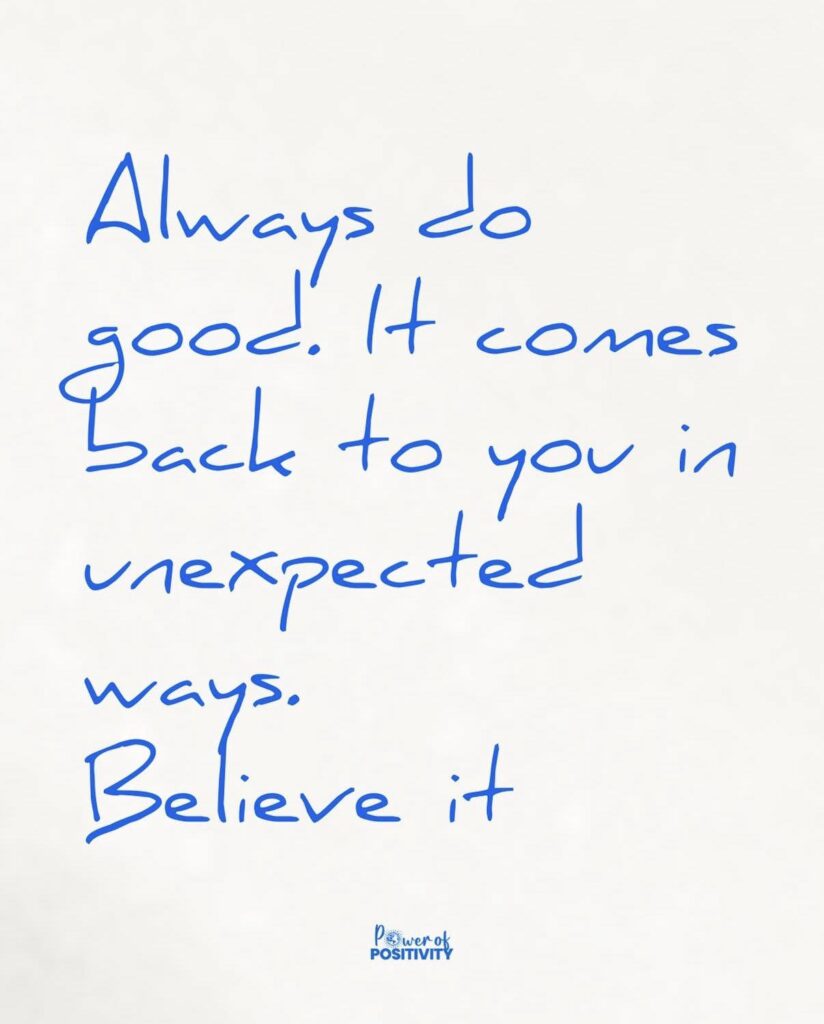 Always do
good. It comes
back to you in
unexpected
ways.
Believe it
Power of
POSITIVITY